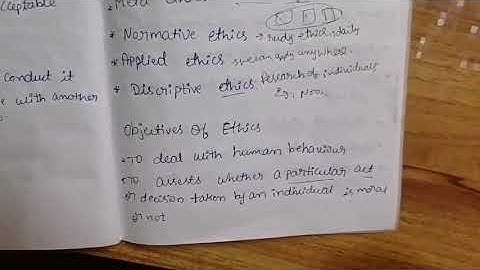 cceptable
Conduct it
with another
* Meta
* Normative ethics → study → daily
* Applied ethics → we can apply anywhere.
* Discriptive ethics. Research of individuals
Objectives Of Ethics
→ To deal with human behaviour
→ To assests whether a particular act
or decision taken by an individual is moral
or not